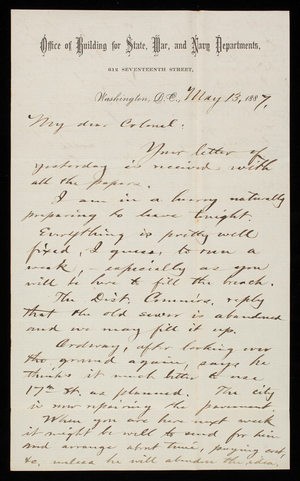 Office of Building for State, War, and Navy Departments,
612 SEVENTEENTH STREET,
Washington, D.C., May 13, 1887.
My dear Colonel:
Your letter of
yesterday is received with
all the papers.
I am in a hurry naturally
preparing to leave tonight.
Everything is pretty well
fixed, I guess, to run a
week, – especially as you
will be here to fill the breach.
The Dist. Commrs. reply
that the old sewer is abandoned
and we may fill it up.
Ordway, after looking over
the ground again, says he
thinks it much better to use
17th St. as planned. The city
is now repairing the pavement.
When you are here next week
it might be well to send for him
and arrange about time, paying cost,
&c. unless he will abandon the idea.